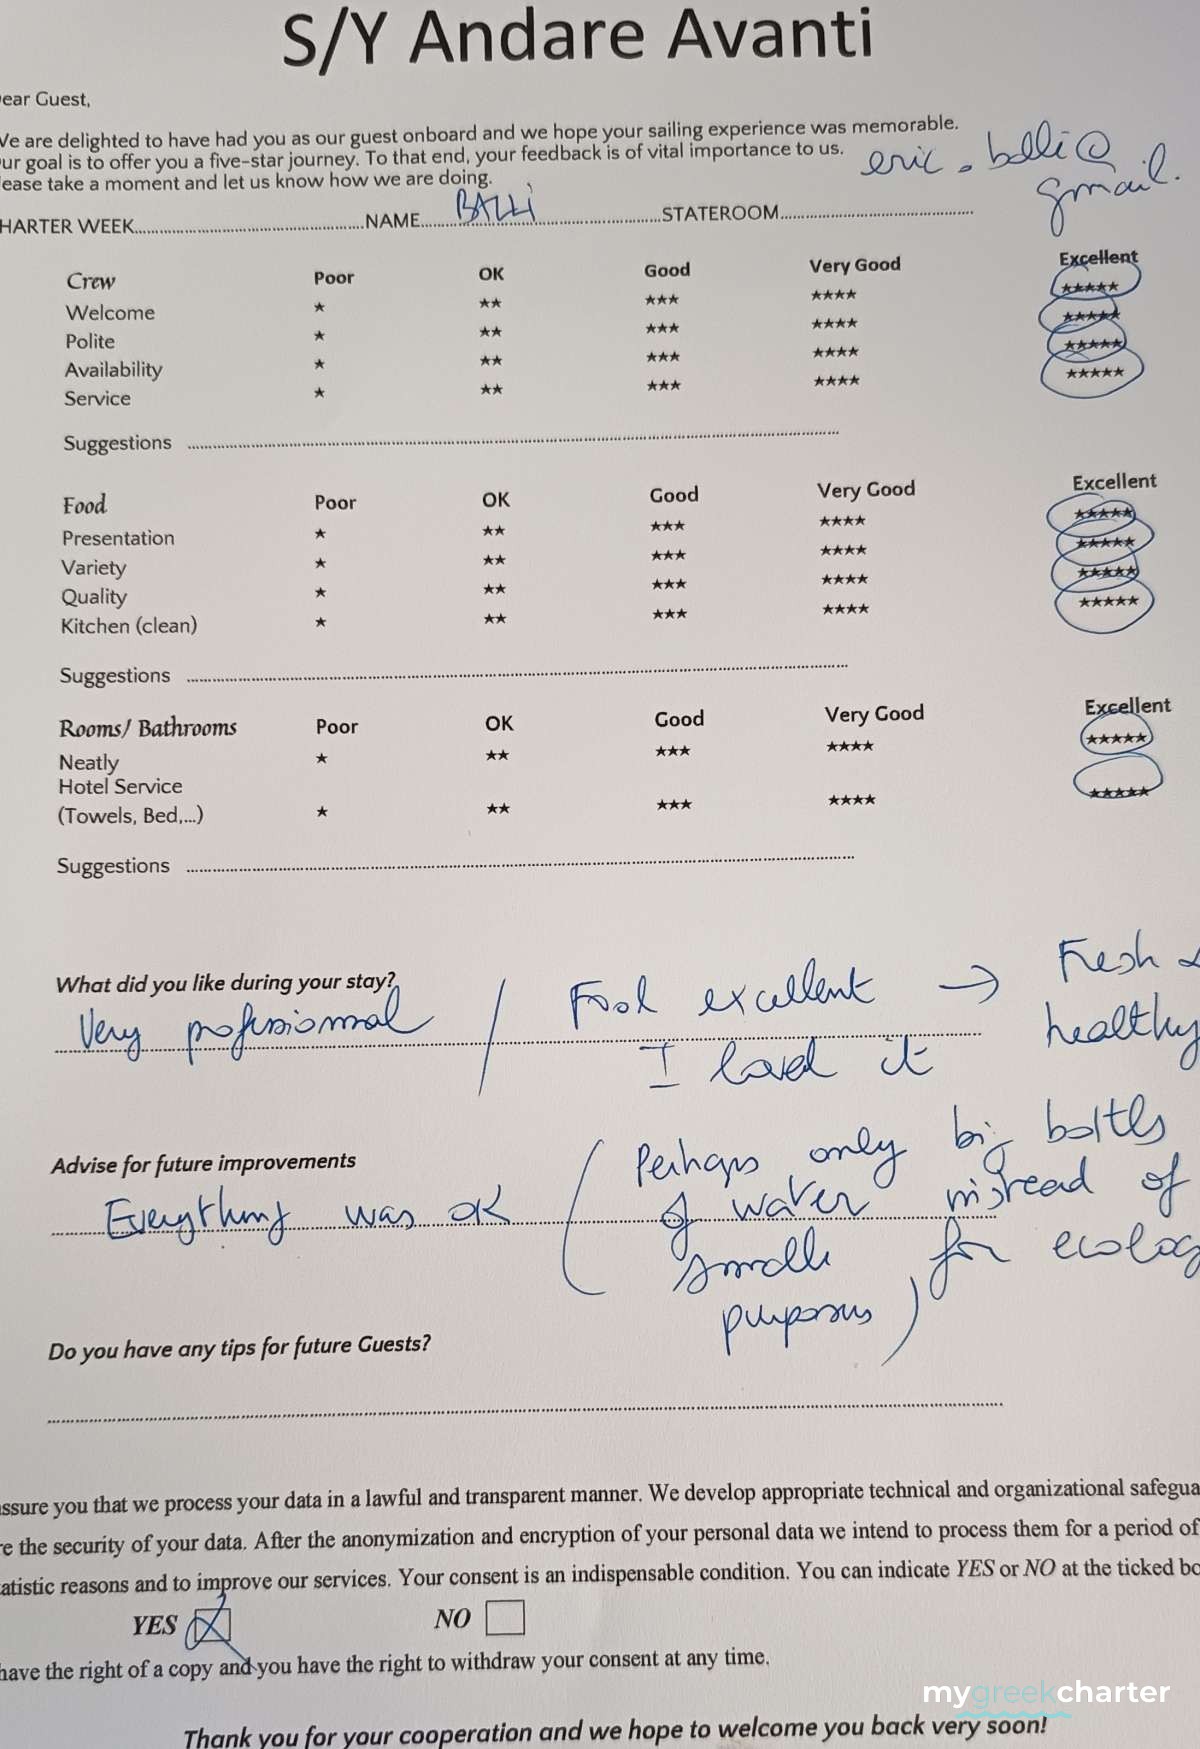 S/Y Andare Avanti
ear Guest,
We are delighted to have had you as our guest onboard and we hope your sailing experience was memorable.
ur goal is to offer you a five-star journey. To that end, your feedback is of vital importance to us.
ease take a moment and let us know how we are doing.
gmail.
HARTER WEEK NAME STATEROOM
Crew Poor OK Good Very Good Excellent
Welcome ★ ★★ ★★★ ★★★★ ★★★★★
Polite ★ ★★ ★★★ ★★★★ ★★★★★
Availability ★ ★★ ★★★ ★★★★ ★★★★★
Service ★ ★★ ★★★ ★★★★ ★★★★★
Suggestions
Food Poor OK Good Very Good Excellent
Presentation ★ ★★ ★★★ ★★★★ ★★★★★
Variety ★ ★★ ★★★ ★★★★ ★★★★★
Quality ★ ★★ ★★★ ★★★★ ★★★★★
Kitchen (clean) ★ ★★ ★★★ ★★★★ ★★★★★
Suggestions
Rooms/ Bathrooms Poor OK Good Very Good Excellent
Neatly ★ ★★ ★★★ ★★★★ ★★★★★
Hotel Service
(Towels, Bed,...) ★ ★★ ★★★ ★★★★ ★★★★★
Suggestions
What did you like during your stay?
Very professionnal / Food excellent → Fresh &
I loved it healthy
Advise for future improvements
Everything was OK (Perhaps only big bottles
of water instead of
smalls for ecolog
purposes)
Do you have any tips for future Guests?
assure you that we process your data in a lawful and transparent manner. We develop appropriate technical and organizational safegua
re the security of your data. After the anonymization and encryption of your personal data we intend to process them for a period of
atistic reasons and to improve our services. Your consent is an indispensable condition. You can indicate YES or NO at the ticked bo
YES NO
have the right of a copy and you have the right to withdraw your consent at any time.
mygreekcharter
Thank you for your cooperation and we hope to welcome you back very soon!